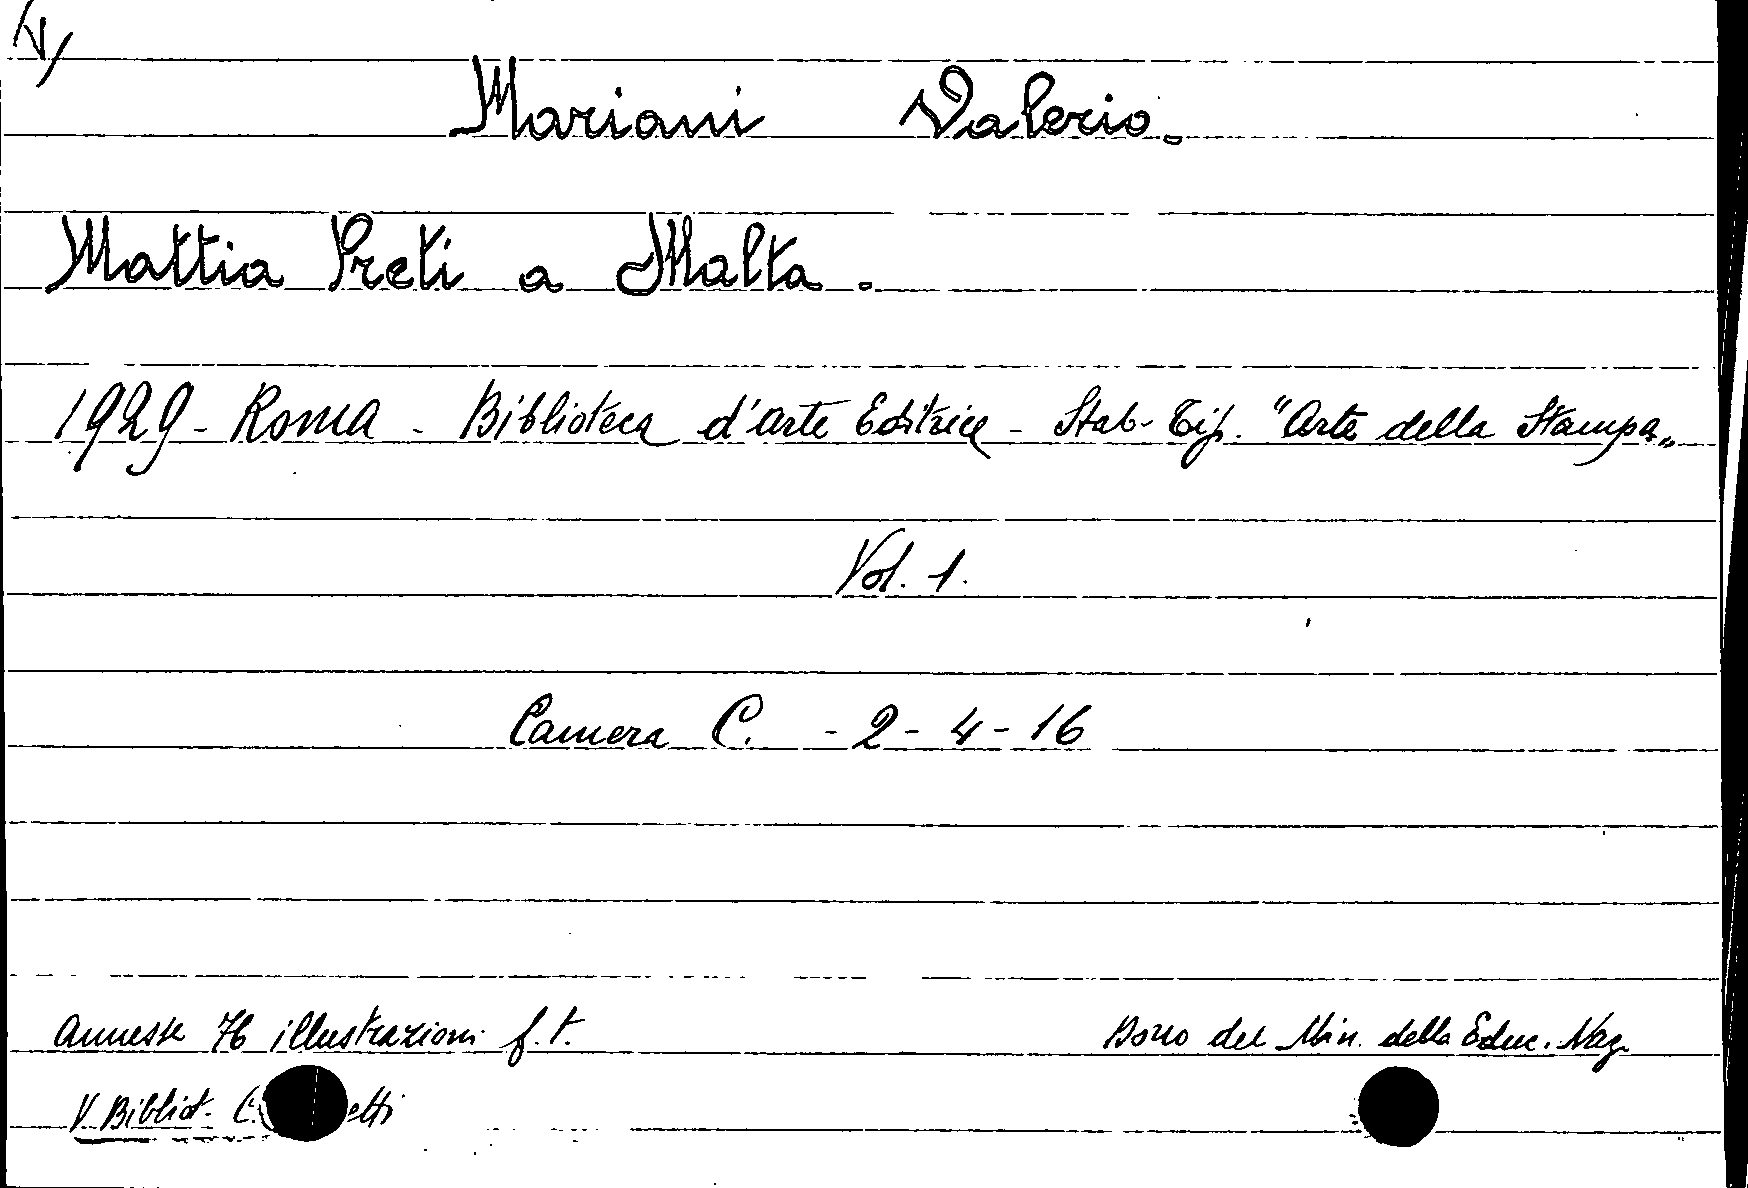 V
Mariani Valerio.
Mattia Preti a Malta.
1929 - Roma - Biblioteca d'arte Editrice - Stab. Tip. "Arte della Stampa„
Vol. 1.
Camera C. - 2 - 4 - 16
Annesse 76 illustrazioni f.t.
Dono del Min. della Educ. Naz.
V. Bibliot.